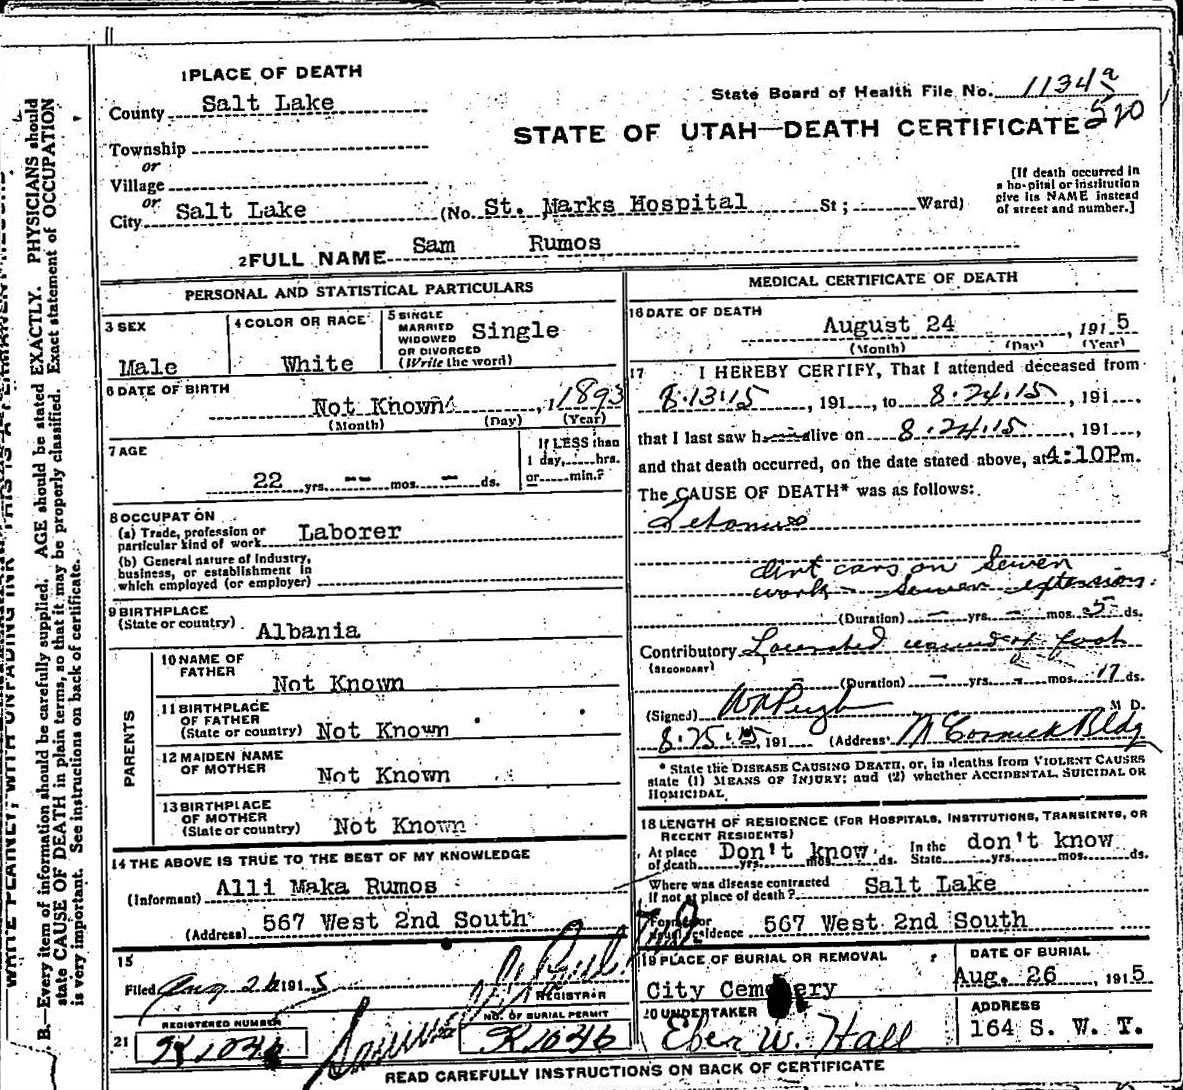 1 PLACE OF DEATH
County Salt Lake
State Board of Health File No. 1134
520
STATE OF UTAH—DEATH CERTIFICATE
Township
or
Village
or
City Salt Lake (No. St. Marks Hospital St; Ward)
[If death occurred in
a hospital or institution
give its NAME instead
of street and number.]
2 FULL NAME Sam Rumos
PERSONAL AND STATISTICAL PARTICULARS
3 SEX
Male
4 COLOR OR RACE
White
5 SINGLE
MARRIED
WIDOWED
OR DIVORCED
(Write the word)
Single
6 DATE OF BIRTH
Not Known , 1 1893
(Month) (Day) (Year)
7 AGE
22 yrs. -- mos. - ds.
If LESS than
1 day, hrs.
or min.?
8 OCCUPATION
(a) Trade, profession or
particular kind of work Laborer
(b) General nature of Industry,
business, or establishment in
which employed (or employer)
9 BIRTHPLACE
(State or country)
Albania
PARENTS
10 NAME OF
FATHER
Not Known
11 BIRTHPLACE
OF FATHER
(State or country) Not Known
12 MAIDEN NAME
OF MOTHER
Not Known
13 BIRTHPLACE
OF MOTHER
(State or country) Not Known
14 THE ABOVE IS TRUE TO THE BEST OF MY KNOWLEDGE
(Informant) Alli Maka Rumos
(Address) 567 West 2nd South
15
Filed Aug 26 191 5
REGISTRAR
REGISTERED NUMBER
21 K1046
NO. OF BURIAL PERMIT
K1046
MEDICAL CERTIFICATE OF DEATH
16 DATE OF DEATH
August 24 , 191 5
(Month) (Day) (Year)
17 I HEREBY CERTIFY, That I attended deceased from
8.13.15 , 191 , to 8.24.15 , 191 ,
that I last saw h alive on 8.24.15 , 191 ,
and that death occurred, on the date stated above, at 4:10P m.
The CAUSE OF DEATH* was as follows:
Tetanus
dirt cars on Sewer
work - Sewer extension.
(Duration) - yrs. - mos. 5 ds.
Contributory Lacerated wound of foot
(SECONDARY)
(Duration) - yrs. - mos. 17 ds.
(Signed) Pugh M D.
8.25.15, 191 (Address) McCornick Bldg
* State the DISEASE CAUSING DEATH, or, in deaths from VIOLENT CAUSES
state (1) MEANS OF INJURY; and (2) whether ACCIDENTAL, SUICIDAL OR
HOMICIDAL.
18 LENGTH OF RESIDENCE (FOR HOSPITALS, INSTITUTIONS, TRANSIENTS, OR
RECENT RESIDENTS)
At place
of death Don't know yrs. mos. ds. In the
State don't know yrs. mos. ds.
Where was disease contracted
If not at place of death? Salt Lake
Former or
usual residence 567 West 2nd South
19 PLACE OF BURIAL OR REMOVAL
City Cemetery
DATE OF BURIAL
Aug. 26 , 191 5
20 UNDERTAKER
Eber W. Hall
ADDRESS
164 S. W. T.
READ CAREFULLY INSTRUCTIONS ON BACK OF CERTIFICATE
B.—Every item of information should be carefully supplied. AGE should be stated EXACTLY. PHYSICIANS should
state CAUSE OF DEATH in plain terms, so that it may be properly classified. Exact statement of OCCUPATION
is very important. See instructions on back of certificate.